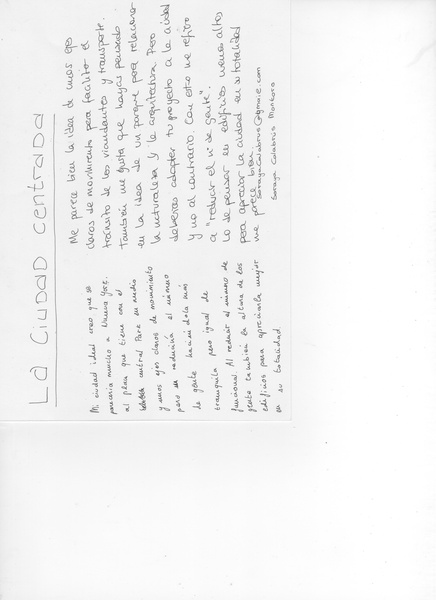 LA CIUDAD CENTRADA
Mi ciudad ideal creo que se
parecería mucho a Nueva York,
al plan que tiene con el
central Park en medio
y unos ejes claros de movimiento
pero reduciría el número
de gente haciéndola más
tranquila pero igual de
funcional. Al reducir el número de
gente también la altura de los
edificios para apreciarla mejor
en su totalidad.
Me parece bien la idea de unos ejes
claros de movimiento para facilitar el
tránsito de los viandantes y transporte.
También me gusta que hayas pensado
en la idea de un parque para relacionar
la naturaleza y la arquitectura. Pero
deberías adaptar tu proyecto a la ciudad
y no al contrario. Con esto me refiero
a "reducir el nº de gente"
Lo de pensar en edificios menos altos
para apreciar la ciudad en su totalidad
me parece bien.
Soraya Calabrús